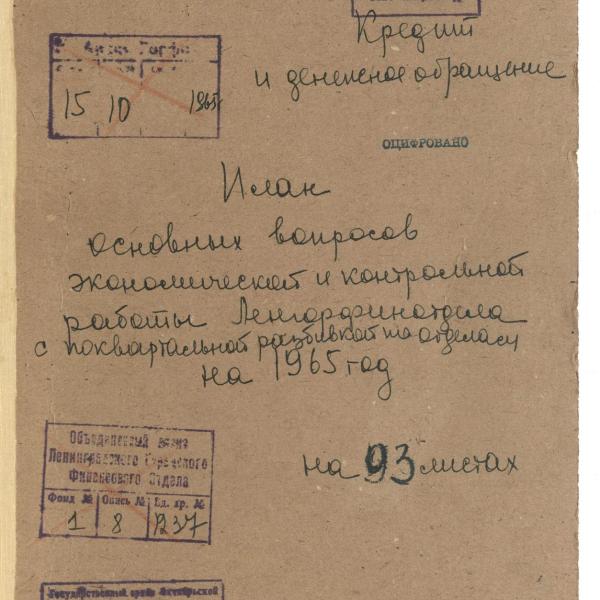 Кредит
и денежное обращение
15 10 1965
ОЦИФРОВАНО
План
основных вопросов
экономической и контрольной
работы Ленгорфинотдела
с поквартальной разбивкой по отделам
на 1965 год
на 93 листах
Объединенный архив
Ленинградского Городского
Финансового Отдела
Фонд № Опись № Ед. хр. №
1 8 237
Государственный архив Октябрьской